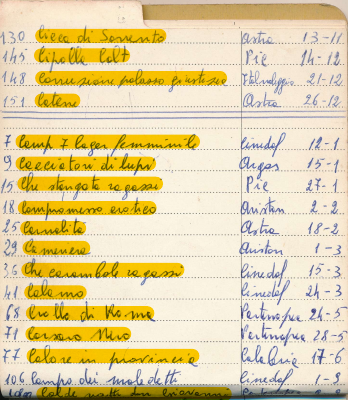 130 Cieca di Sorrento Astra 13-11
145 Cipolla Colt Pic 14-12
148 Corruzione palazzo giustizia Italnoleggio 21-12
151 Catene Astra 26-12
7 Camp 7 lager femminile Cinedaf 12-1
9 Cacciatori di lupi Argos 15-1
15 Che stangata ragazzi Pic 27-1
18 Compromesso erotico Ariston 2-2
25 Carnalità Astra 18-2
29 Ariston 1-3
36 Che carambole ragazzi Cinedaf 15-3
41 Calamo Cinedaf 24-3
68 Crollo di Roma Partenopea 24-5
71 Corsaro Nero Partenopea 28-5
77 Calore in provincia Calabria 17-6
106 Campo dei maledetti Cinedaf 1-9
Calde notti